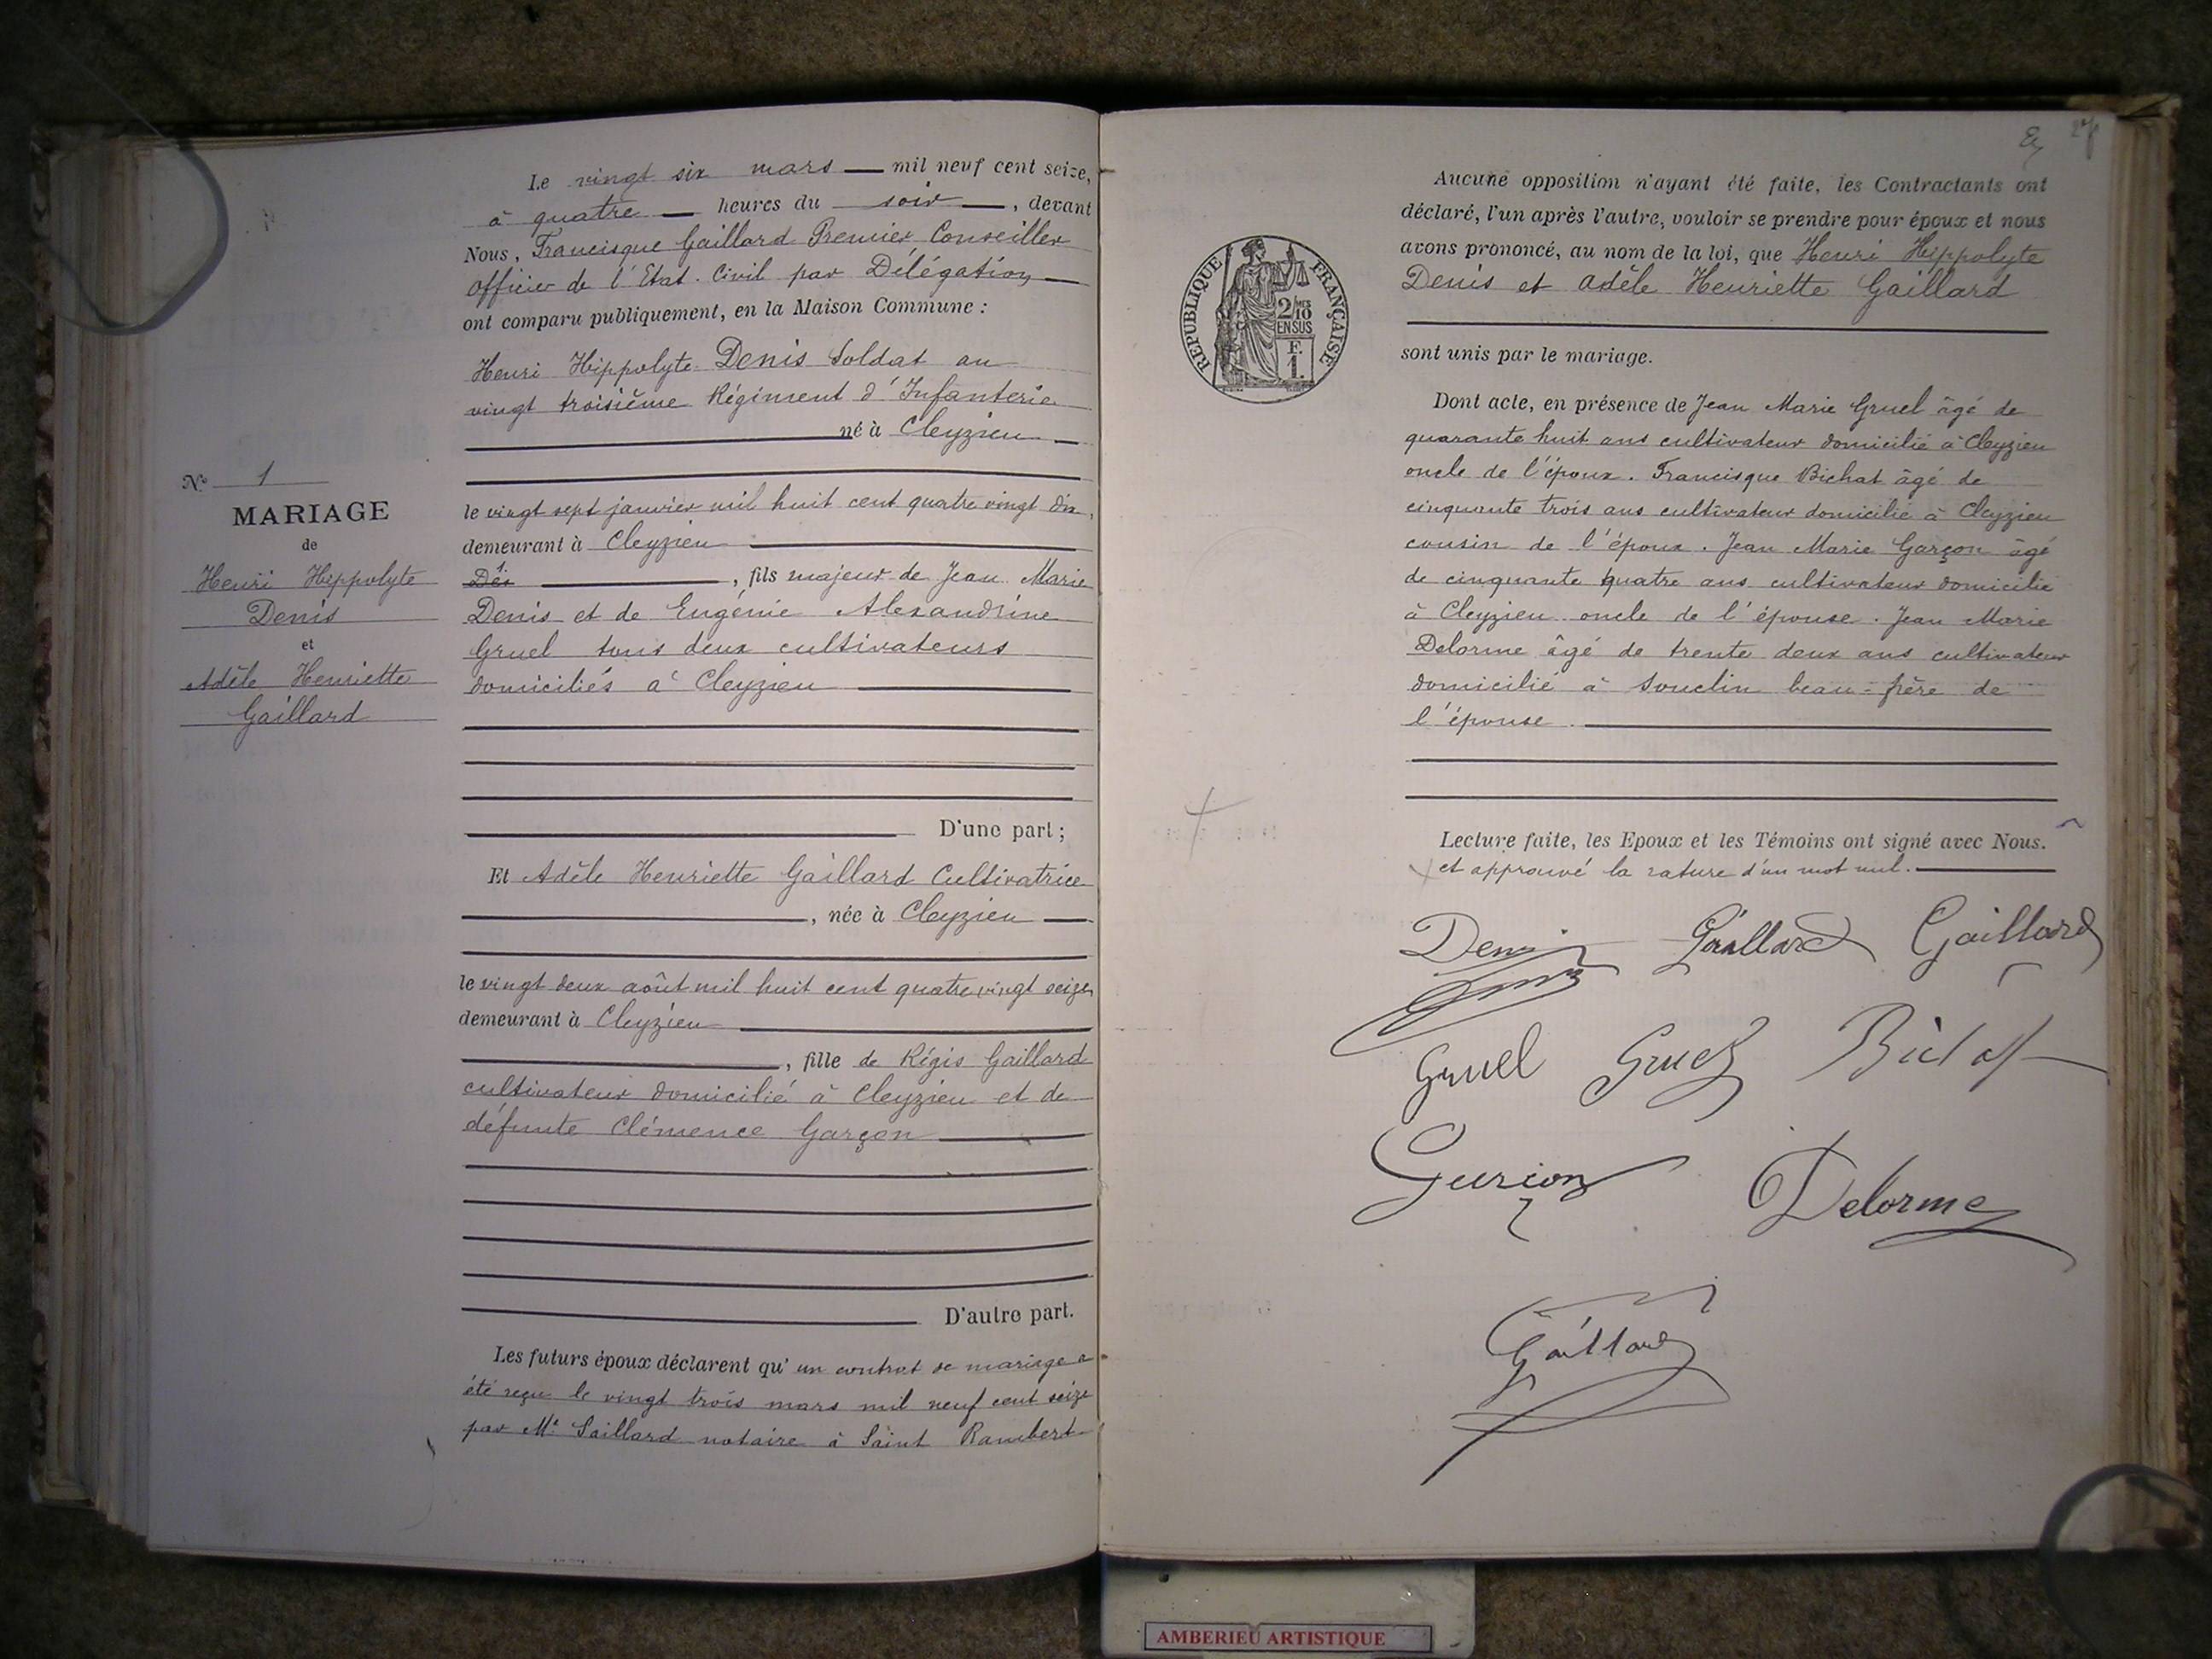 Le vingt six mars mil neuf cent seize,
à quatre heures du soir, devant
Nous, Francisque Gaillard Premier Conseiller
officier de l'Etat. Civil par Délégation
ont comparu publiquement, en la Maison Commune :
Henri Hippolyte Denis Soldat au
vingt troisième Régiment d'Infanterie
né à Cleyzieu
le vingt sept janvier mil huit cent quatre vingt dix,
demeurant à Cleyzieu
, fils majeur de Jean Marie
Denis et de Eugénie Alexandrine
Gruel tous deux cultivateurs
domiciliés à Cleyzieu
D'une part ;
Et Adèle Henriette Gaillard Cultivatrice
, née à Cleyzieu
le vingt deux août mil huit cent quatre vingt seize
demeurant à Cleyzieu
, fille de Régis Gaillard
cultivateur domicilié à Cleyzieu et de
défunte Clémence Garçon
D'autre part.
Les futurs époux déclarent qu'un contrat de mariage a
été reçu le vingt trois mars mil neuf cent seize
par Me Saillard notaire à Saint Rambert
N° 1
MARIAGE
de
Henri Hippolyte
Denis
et
Adèle Henriette
Gaillard
27
REPUBLIQUE FRANÇAISE
2/10
MES
EN SUS
F.
1.
Aucune opposition n'ayant été faite, les Contractants ont
déclaré, l'un après l'autre, vouloir se prendre pour époux et nous
avons prononcé, au nom de la loi, que Henri Hippolyte
Denis et Adèle Henriette Gaillard
sont unis par le mariage.
Dont acte, en présence de Jean Marie Gruel âgé de
quarante huit ans cultivateur domicilié à Cleyzieu
oncle de l'époux. Francisque Bichat âgé de
cinquante trois ans cultivateur domicilié à Cleyzieu
cousin de l'époux. Jean Marie Garçon âgé
de cinquante quatre ans cultivateur domicilié
à Cleyzieu oncle de l'épouse. Jean Marie
Delorme âgé de trente deux ans cultivateur
domicilié à Souclin beau-frère de
l'épouse.
Lecture faite, les Epoux et les Témoins ont signé avec Nous.
et approuvé la rature d'un mot nul.
Denis Gaillard Gaillard
Gruel Gruel Bichat
Delorme
Gaillard
AMBERIEU ARTISTIQUE